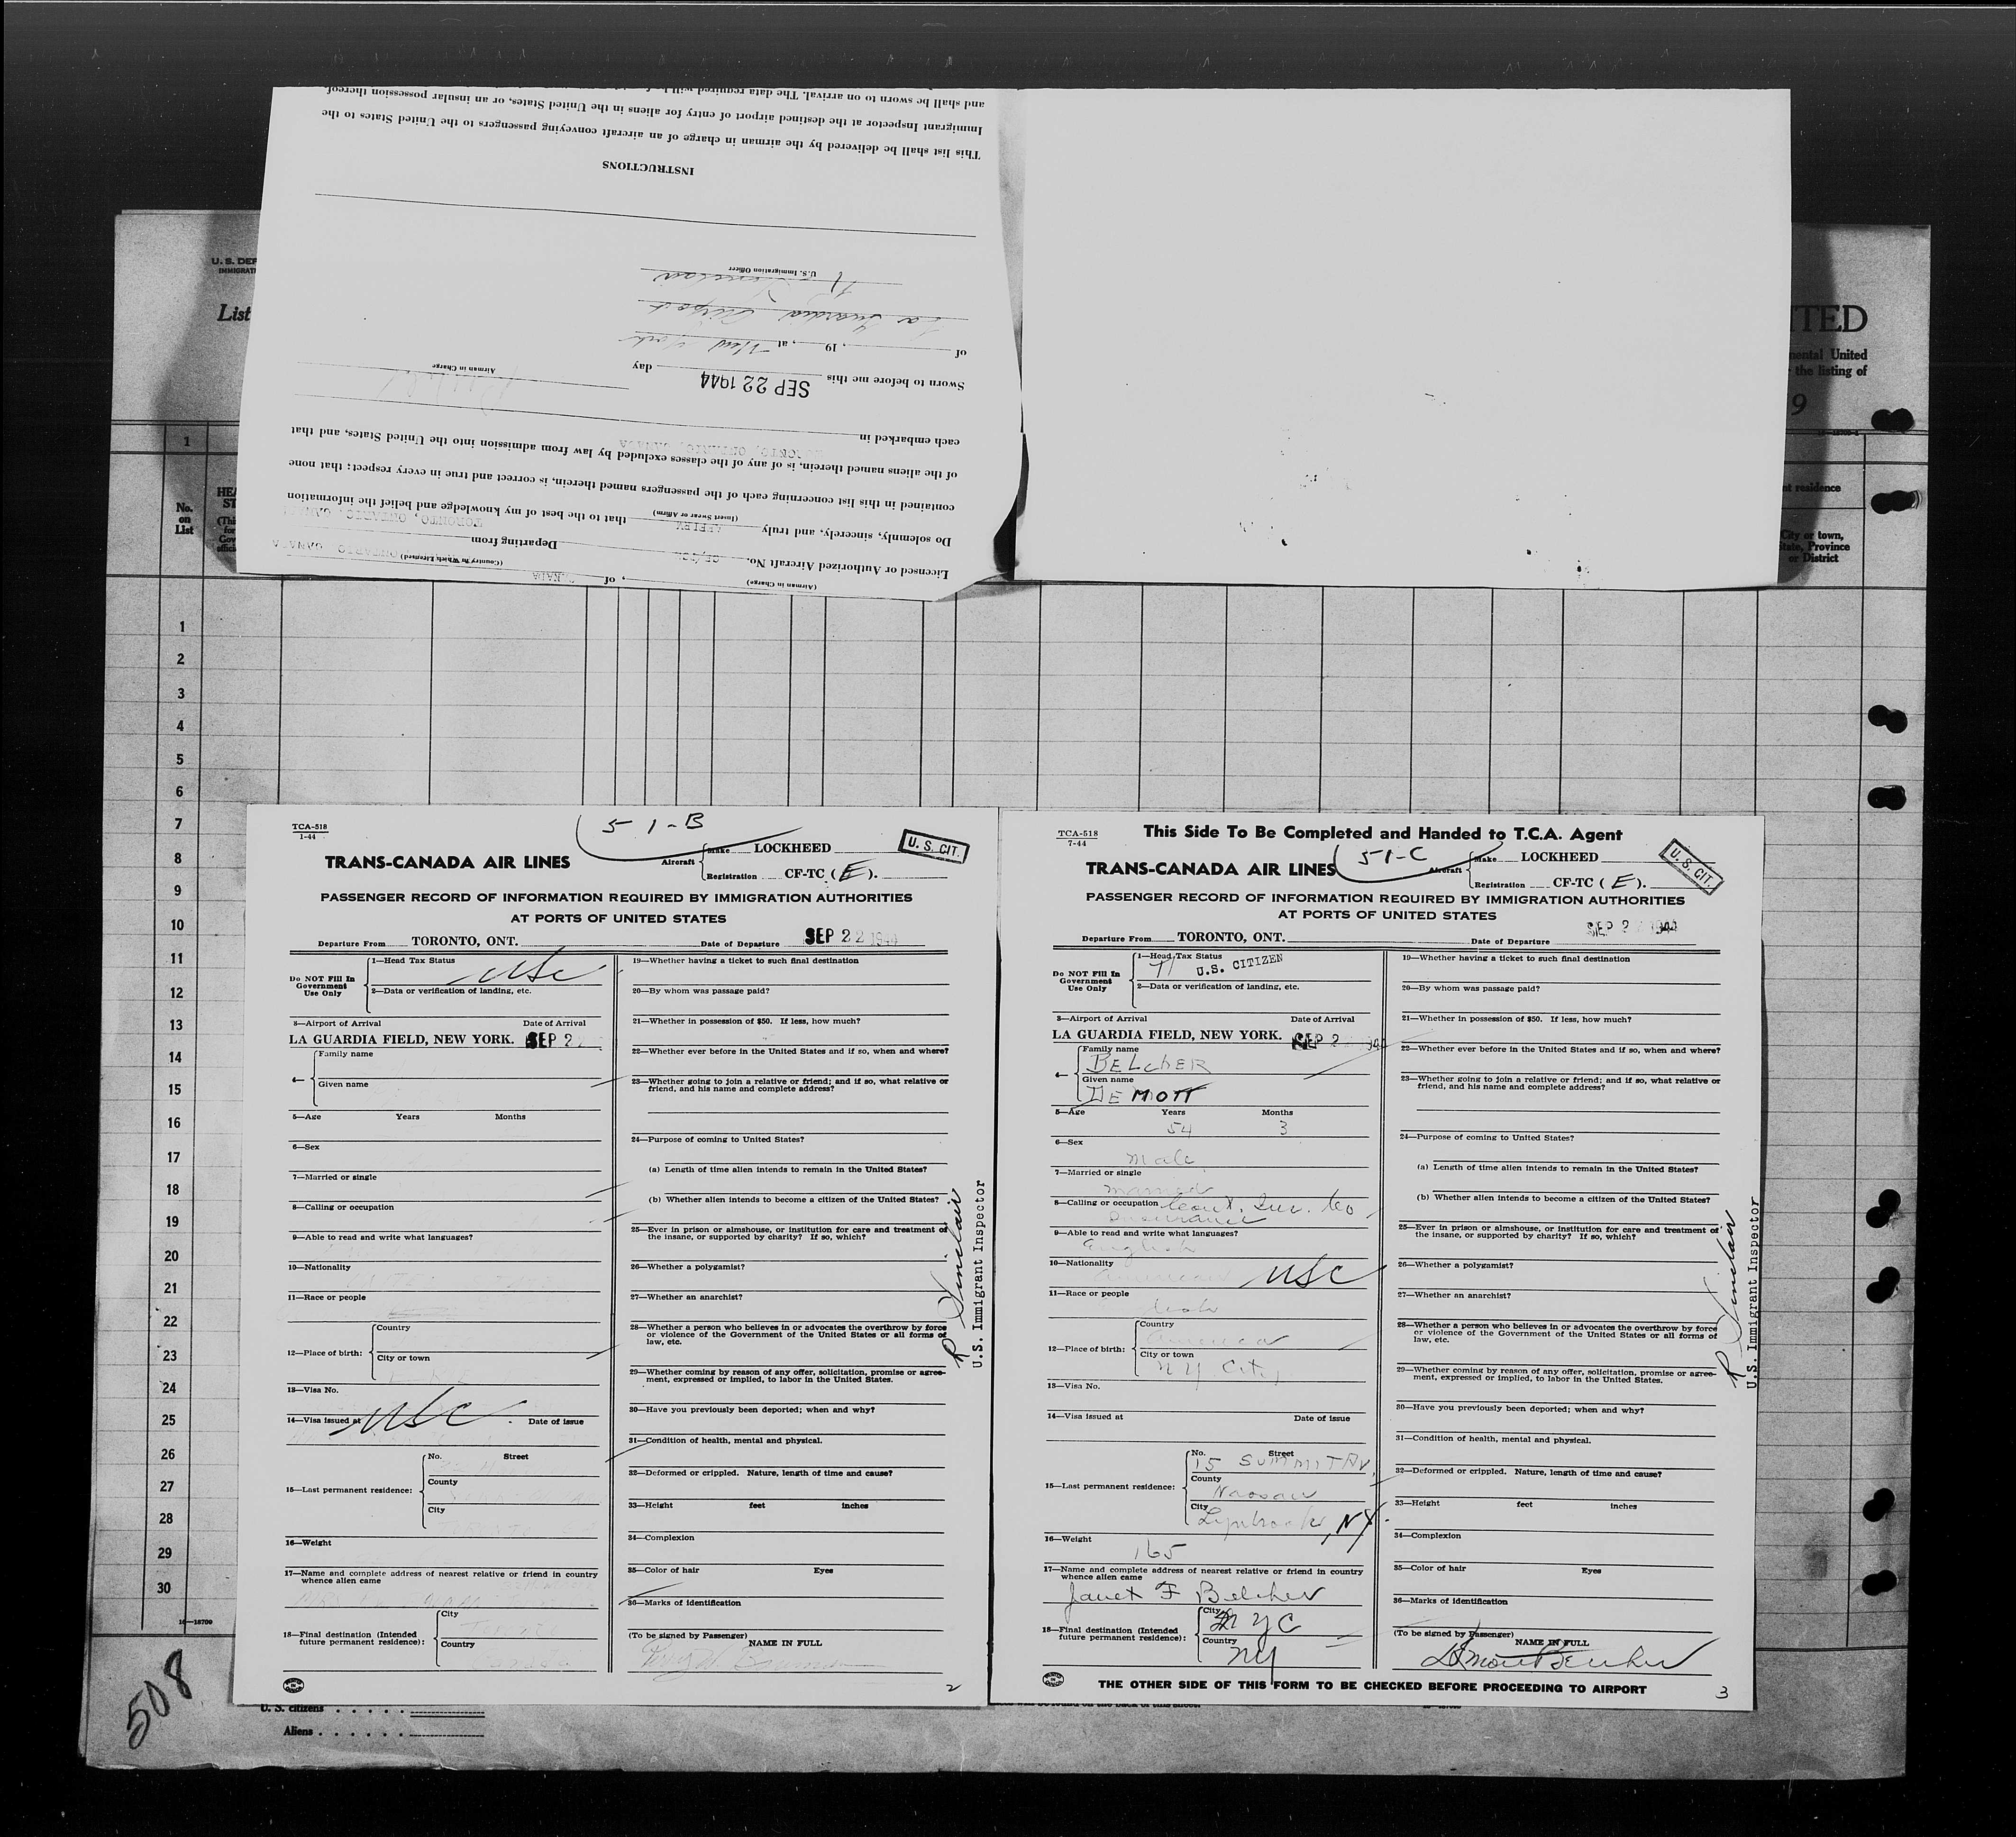 and shall be sworn to on arrival. The data required will
Immigrant Inspector at the destined airport of entry for aliens in the United States, or an insular possession thereof,
This list shall be delivered by the airman in charge of an aircraft conveying passengers to the United States to the
INSTRUCTIONS
U.S. Immigration Officer
La Guardia Airport
of , 19 , at New York
Sworn to before me this SEP 22 1944 day
Airman in Charge
each embarked in TORONTO, ONTARIO, CANADA
of the aliens named therein, is of any of the classes excluded by law from admission into the United States, and that
contained in this list concerning each of the passengers named therein, is correct and true in every respect; that none
Do solemnly, sincerely, and truly (Insert Swear or Affirm) that to the best of my knowledge and belief the information
Licensed or Authorized Aircraft No. Departing from TORONTO, ONTARIO,
(Airman in Charge) , of CANADA (Country in Which Licensed)
U. S. DEP
IMMIGRAT
List
ITED
nental United
the listing of
9
1
No.
on
List
HEA
ST
(Thi
for
Gov
offici
nt residence
City or town,
State, Province
or District
1
2
3
4
5
6
7
8
9
10
11
12
13
14
15
16
17
18
19
20
21
22
23
24
25
26
27
28
29
30
16—18709
TCA-518
1-44
51-B
U. S. CIT.
TRANS-CANADA AIR LINES
Aircraft
Make LOCKHEED
Registration CF-TC (E).
PASSENGER RECORD OF INFORMATION REQUIRED BY IMMIGRATION AUTHORITIES
AT PORTS OF UNITED STATES
Departure From TORONTO, ONT. Date of Departure SEP 22 1944
Do NOT Fill In
Government
Use Only
1—Head Tax Status
USC
2—Data or verification of landing, etc.
3—Airport of Arrival Date of Arrival
LA GUARDIA FIELD, NEW YORK. SEP 22
4— Family name
Given name
5—Age Years Months
6—Sex
7—Married or single
8—Calling or occupation
9—Able to read and write what languages?
10—Nationality
11—Race or people
12—Place of birth: Country
City or town
13—Visa No.
14—Visa issued at USC Date of issue
15—Last permanent residence: No. Street
County
City
16—Weight
17—Name and complete address of nearest relative or friend in country
whence alien came
18—Final destination (Intended
future permanent residence): City
Country
Canada
19—Whether having a ticket to such final destination
20—By whom was passage paid?
21—Whether in possession of $50. If less, how much?
22—Whether ever before in the United States and if so, when and where?
23—Whether going to join a relative or friend; and if so, what relative or
friend, and his name and complete address?
24—Purpose of coming to United States?
(a) Length of time alien intends to remain in the United States?
(b) Whether alien intends to become a citizen of the United States?
25—Ever in prison or almshouse, or institution for care and treatment of
the insane, or supported by charity? If so, which?
26—Whether a polygamist?
27—Whether an anarchist?
28—Whether a person who believes in or advocates the overthrow by force
or violence of the Government of the United States or all forms of
law, etc.
29—Whether coming by reason of any offer, solicitation, promise or agree-
ment, expressed or implied, to labor in the United States.
30—Have you previously been deported; when and why?
31—Condition of health, mental and physical.
32—Deformed or crippled. Nature, length of time and cause?
33—Height feet inches
34—Complexion
35—Color of hair Eyes
36—Marks of identification
(To be signed by Passenger)
NAME IN FULL
2
R Sinclair
U.S. Immigrant Inspector
TCA-518
7-44
This Side To Be Completed and Handed to T.C.A. Agent
51-C
U. S. CIT.
TRANS-CANADA AIR LINES
Aircraft
Make LOCKHEED
Registration CF-TC (E).
PASSENGER RECORD OF INFORMATION REQUIRED BY IMMIGRATION AUTHORITIES
AT PORTS OF UNITED STATES
Departure From TORONTO, ONT. Date of Departure SEP 22 1944
Do NOT Fill In
Government
Use Only
1—Head Tax Status
U.S. CITIZEN
2—Data or verification of landing, etc.
3—Airport of Arrival Date of Arrival
LA GUARDIA FIELD, NEW YORK. SEP 2 1944
4— Family name
BELCHER
Given name
DE MOTT
5—Age Years Months
54 3
6—Sex
male
7—Married or single
married
8—Calling or occupation
Insurance
9—Able to read and write what languages?
English
10—Nationality
American USC
11—Race or people
12—Place of birth: Country
America
City or town
N Y City
13—Visa No.
14—Visa issued at Date of issue
15—Last permanent residence: No. Street
15 SUMMIT AV.
County
Nassau
City
Lynbrook, NY.
16—Weight
165
17—Name and complete address of nearest relative or friend in country
whence alien came
Janet F Belcher
18—Final destination (Intended
future permanent residence): City
N Y C
Country
NY
19—Whether having a ticket to such final destination
20—By whom was passage paid?
21—Whether in possession of $50. If less, how much?
22—Whether ever before in the United States and if so, when and where?
23—Whether going to join a relative or friend; and if so, what relative or
friend, and his name and complete address?
24—Purpose of coming to United States?
(a) Length of time alien intends to remain in the United States?
(b) Whether alien intends to become a citizen of the United States?
25—Ever in prison or almshouse, or institution for care and treatment of
the insane, or supported by charity? If so, which?
26—Whether a polygamist?
27—Whether an anarchist?
28—Whether a person who believes in or advocates the overthrow by force
or violence of the Government of the United States or all forms of
law, etc.
29—Whether coming by reason of any offer, solicitation, promise or agree-
ment, expressed or implied, to labor in the United States.
30—Have you previously been deported; when and why?
31—Condition of health, mental and physical.
32—Deformed or crippled. Nature, length of time and cause?
33—Height feet inches
34—Complexion
35—Color of hair Eyes
36—Marks of identification
(To be signed by Passenger)
NAME IN FULL
DeMott Belcher
THE OTHER SIDE OF THIS FORM TO BE CHECKED BEFORE PROCEEDING TO AIRPORT
3
R Sinclair
U.S. Immigrant Inspector
508
U. S. citizens
Aliens